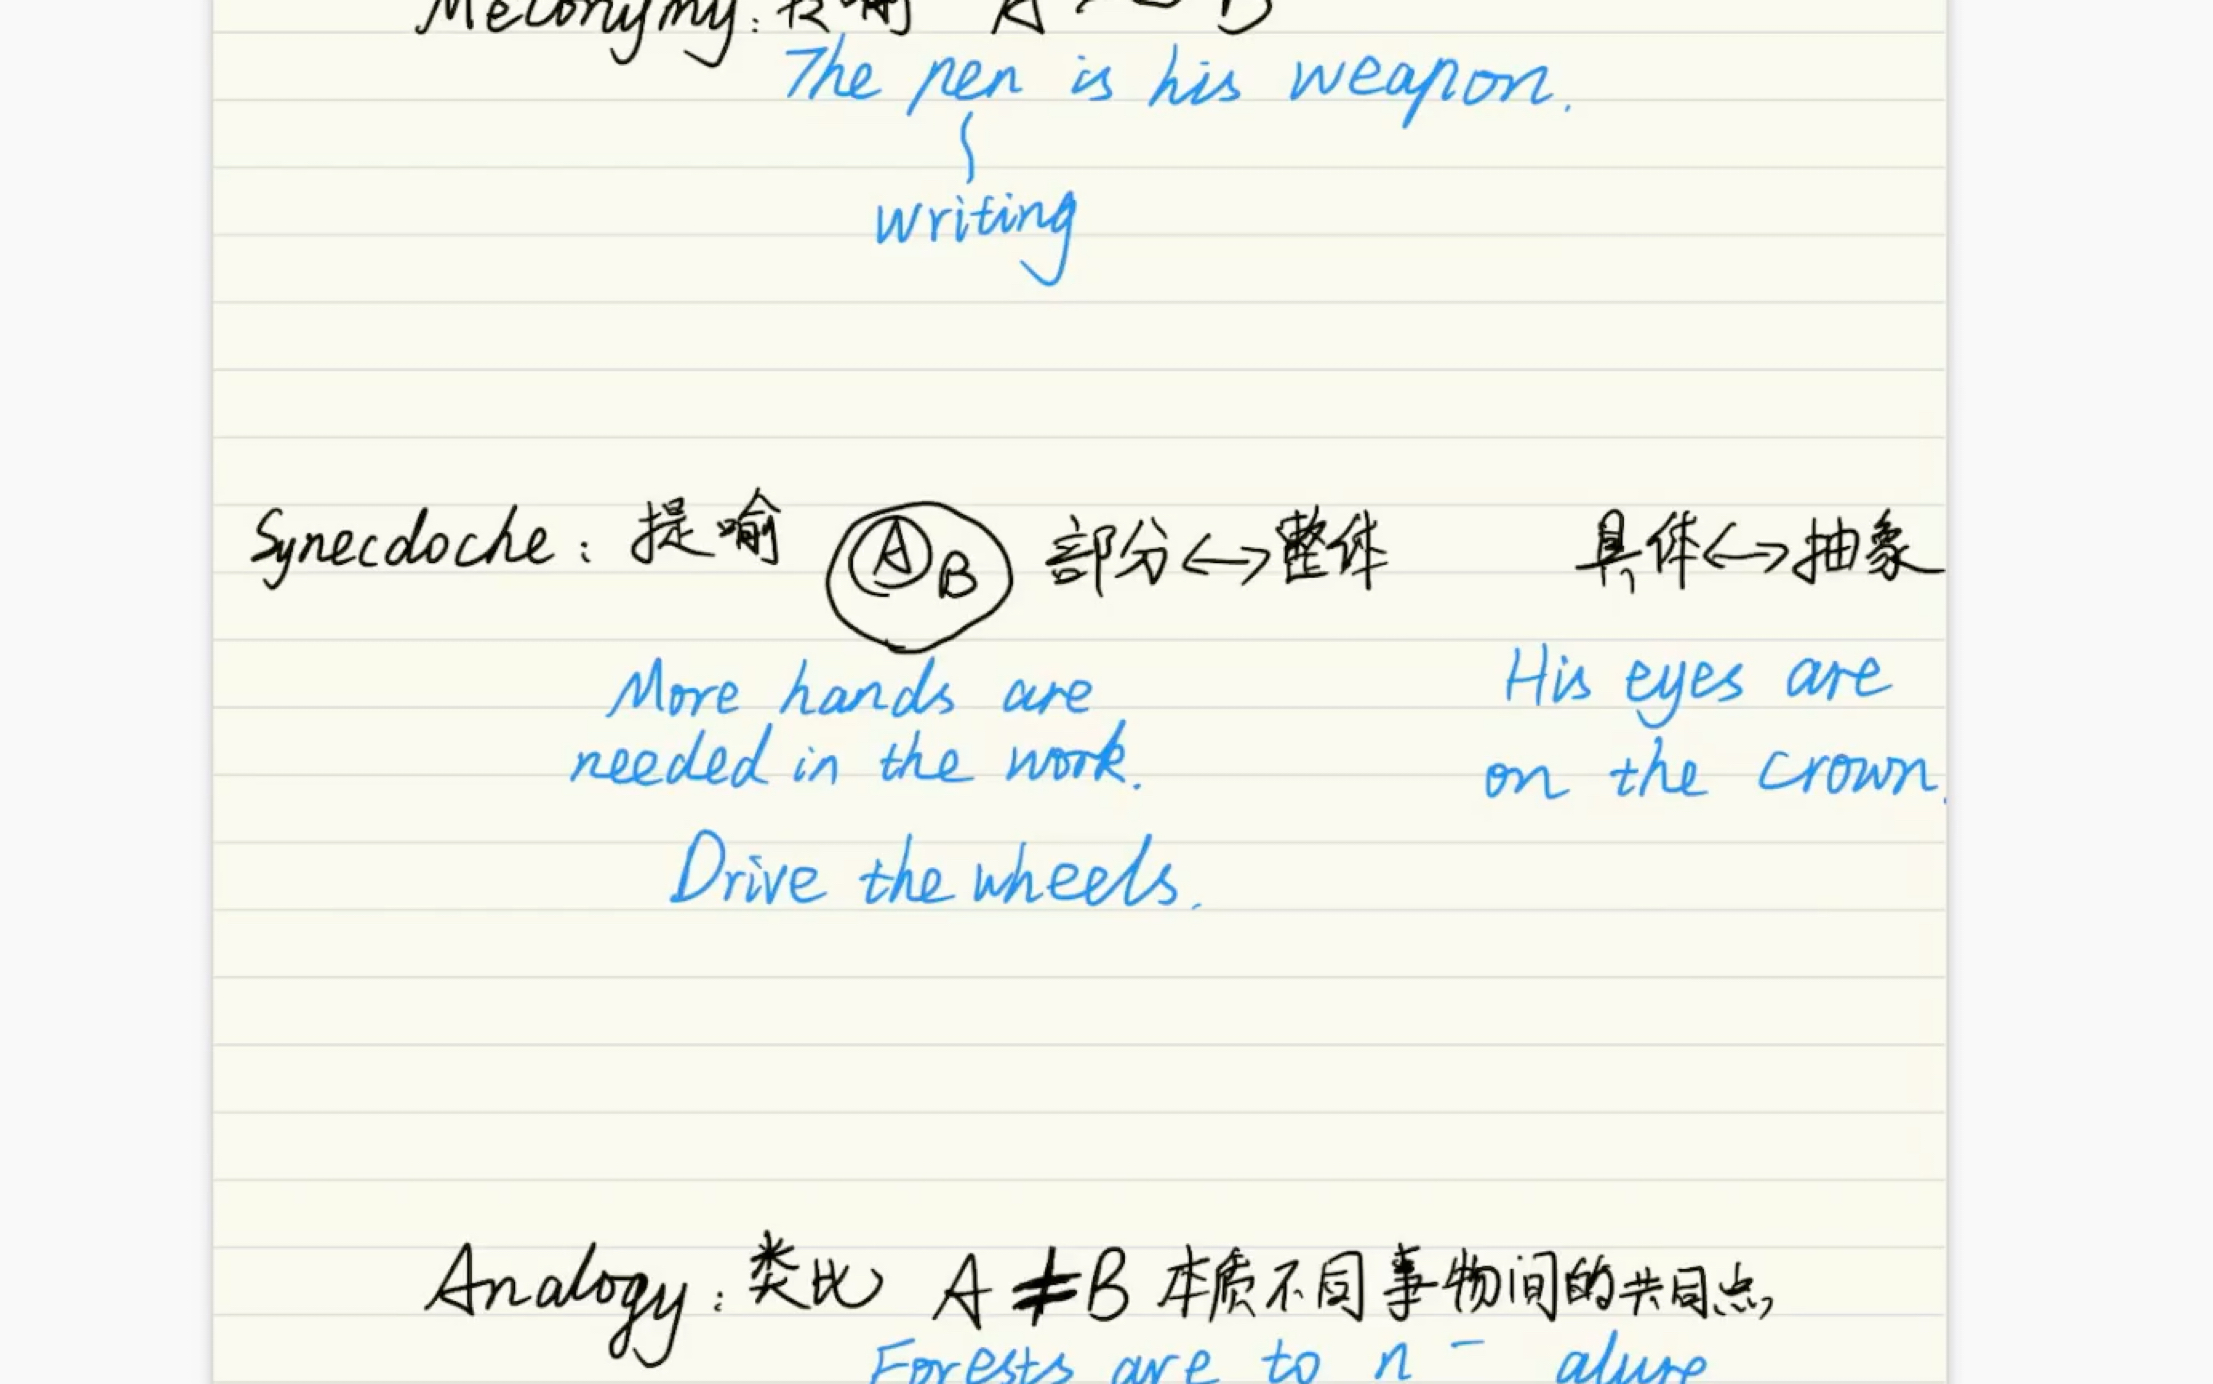 Metonymy: 喻 A B
The pen is his weapon.
writing
Synecdoche: 提喻 A B 部分<->整体 具体<->抽象
More hands are
needed in the work.
His eyes are
on the crown.
Drive the wheels.
Analogy: 类比 A ≠ B 本质不同事物间的共同点
Forests are to